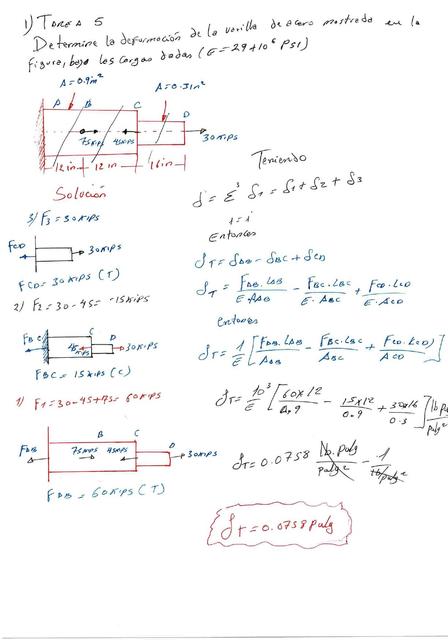 1) TAREA 5
Determine la deformación de la varilla de acero mostrada en la
figura, bajo las cargas dadas (E=29*10⁶ PSI)
A=0.9in²
A=0.3in²
A B C D
75kips 45kips 30kips
12in 12in 16in
Solución
3) F3=30kips
FCD 30kips
FCD=30kips (T)
2) F2=30-45=-15kips
FBC C D
45kips 30kips
FBC=15kips (C)
1) F1=30-45+75=60kips
B C D
FAB 75kips 45kips 30kips
FAB=60kips (T)
Teniendo
δ=Σ³ δi=δ1+δ2+δ3
i=i
Entonces
δT=δAB-δBC+δCD
δT=FAB.LAB/E.AAB - FBC.LBC/E.ABC + FCD.LCD/E.ACD
entonces
δT=1/E[FAB.LAB/AAB - FBC.LBC/ABC + FCD.LCD/ACD]
δT=10³/E[60x12/0.9 - 15x12/0.9 + 30x16/0.3]
δT=0.0758 lb.pulg/pulg² - 1/lb/pulg²
δT=0.0758 pulg